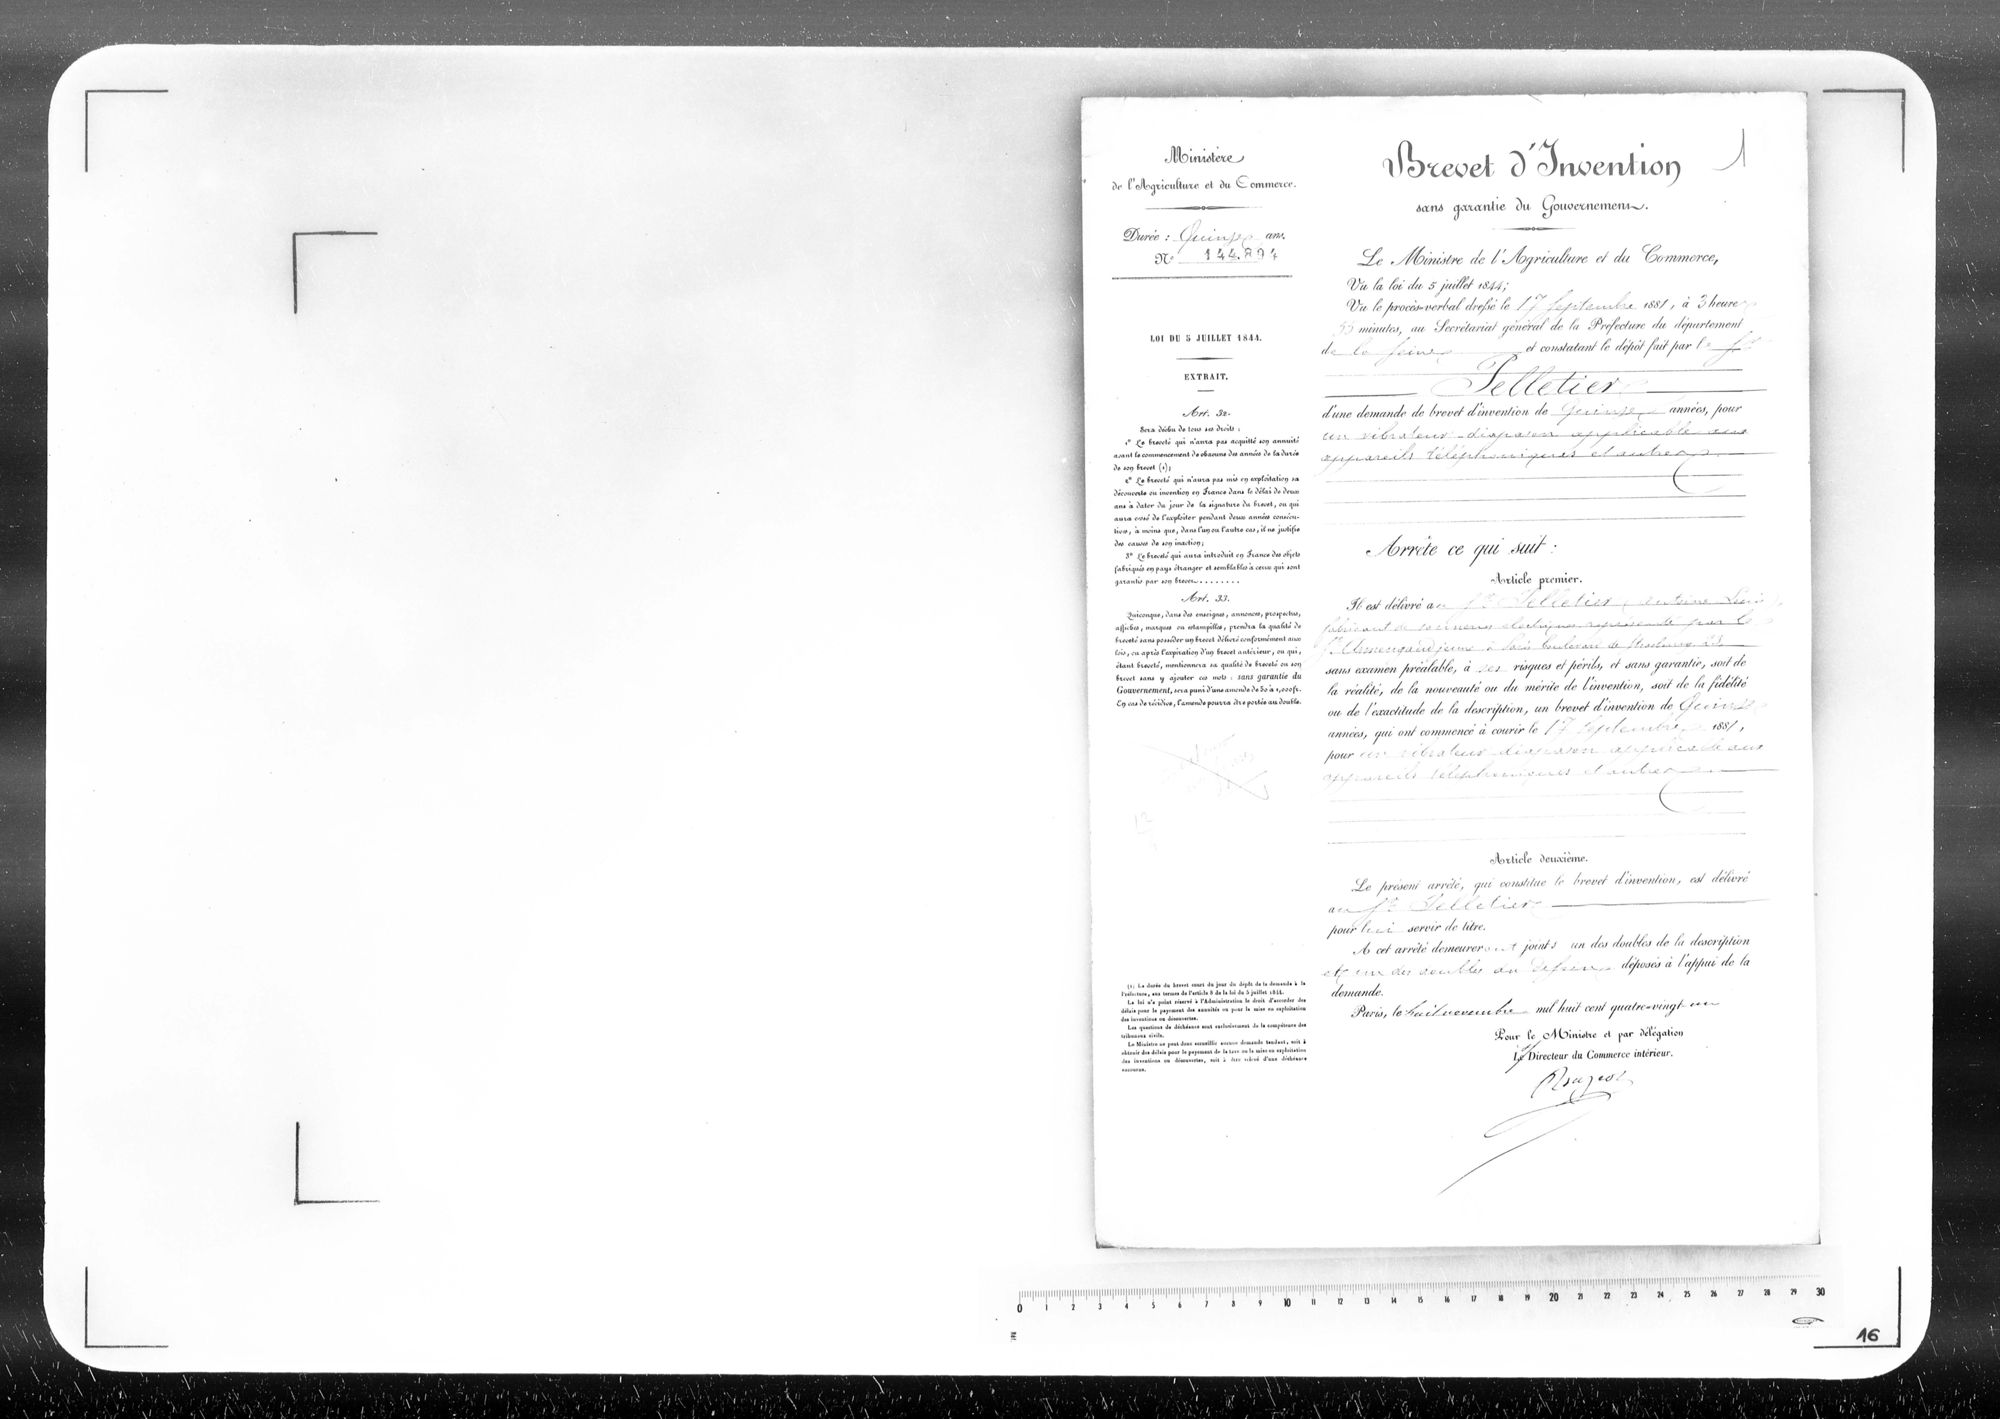 Ministère
de l'Agriculture et du Commerce.
Durée : Quinze ans.
N° 144.894
LOI DU 5 JUILLET 1844.
EXTRAIT.
Art. 32.
Sera déchu de tous ses droits :
1° Le breveté qui n'aura pas acquitté son annuité
avant le commencement de chacune des années de la durée
de son brevet (1);
2° Le breveté qui n'aura pas mis en exploitation sa
découverte ou invention en France dans le délai de deux
ans à dater du jour de la signature du brevet, ou qui
aura cessé de l'exploiter pendant deux années consécu-
tives, à moins que, dans l'un ou l'autre cas, il ne justifie
des causes de son inaction;
3° Le breveté qui aura introduit en France des objets
fabriqués en pays étranger et semblables à ceux qui sont
garantis par son brevet........
Art. 33.
Quiconque, dans des enseignes, annonces, prospectus,
affiches, marques ou estampilles, prendra la qualité de
breveté sans posséder un brevet délivré conformément aux
lois, ou après l'expiration d'un brevet antérieur, ou qui,
étant breveté, mentionnera sa qualité de breveté ou son
brevet sans y ajouter ces mots : sans garantie du
Gouvernement, sera puni d'une amende de 50 à 1,000 fr.
En cas de récidive, l'amende pourra être portée au double.
12
(1) La durée du brevet court du jour du dépôt de la demande à la
Préfecture, aux termes de l'article 8 de la loi du 5 juillet 1844.
La loi n'a point réservé à l'Administration le droit d'accorder des
délais pour le payement des annuités ou pour la mise en exploitation
des inventions ou découvertes.
Les questions de déchéance sont exclusivement de la compétence des
tribunaux civils.
Le Ministre ne peut donc accueillir aucune demande tendant, soit à
obtenir des délais pour le payement de la taxe ou la mise en exploitation
des inventions ou découvertes, soit à être relevé d'une déchéance
encourue.
1
Brevet d'Invention
sans garantie du Gouvernement.
Le Ministre de l'Agriculture et du Commerce,
Vu la loi du 5 juillet 1844;
Vu le procès-verbal dressé le 17 Septembre 1881, à 3 heures
55 minutes, au Secrétariat général de la Préfecture du département
de la Seine et constatant le dépôt fait par le Sr
Pelletier
d'une demande de brevet d'invention de Quinze années, pour
un vibrateur-diapason applicable aux
appareils téléphoniques et autres
Arrête ce qui suit :
Article premier.
Il est délivré au Sr Pelletier (Antoine Louis),
fabricant de sonneries électriques représenté par le
Sr Armengaud jeune à Paris boulevard de Strasbourg 23
sans examen préalable, à ses risques et périls, et sans garantie, soit de
la réalité, de la nouveauté ou du mérite de l'invention, soit de la fidélité
ou de l'exactitude de la description, un brevet d'invention de Quinze
années, qui ont commencé à courir le 17 Septembre 1881,
pour un vibrateur-diapason applicable aux
appareils téléphoniques et autres
Article deuxième.
Le présent arrêté, qui constitue le brevet d'invention, est délivré
au Sr Pelletier
pour lui servir de titre.
A cet arrêté demeureront joints un des doubles de la description
et un des doubles du dessin déposés à l'appui de la
demande.
Paris, le huit novembre mil huit cent quatre-vingt-un
Pour le Ministre et par délégation
Le Directeur du Commerce intérieur.
0 1 2 3 4 5 6 7 8 9 10 11 12 13 14 15 16 17 18 19 20 21 22 23 24 25 26 27 28 29 30
16